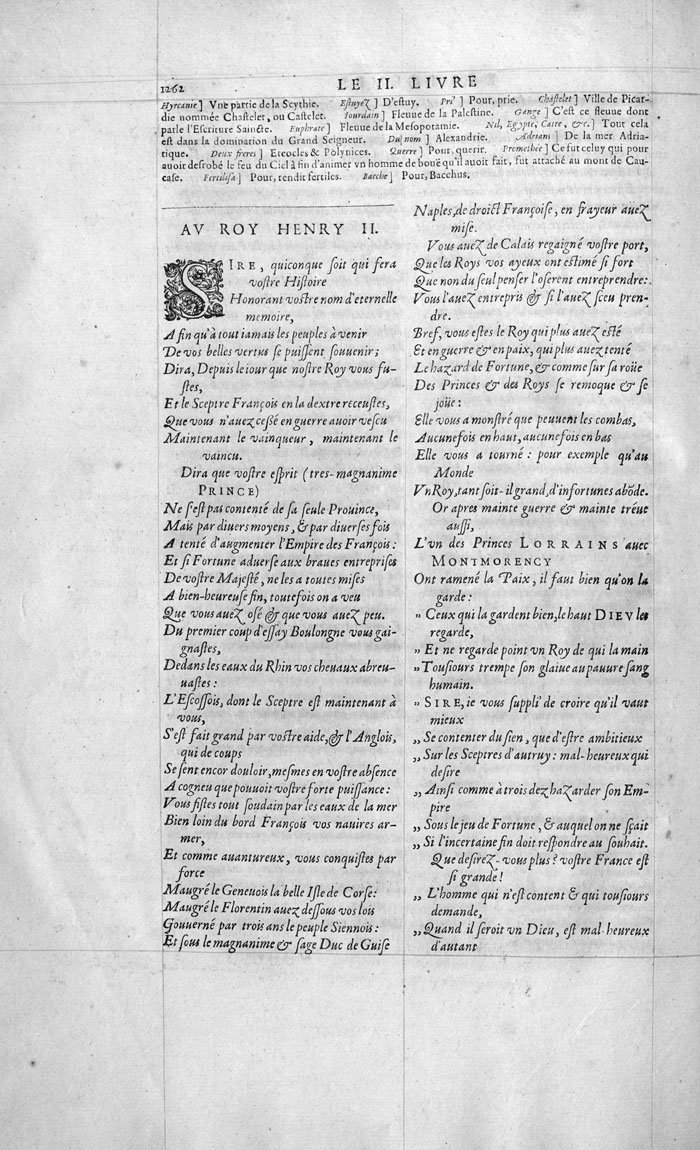 1262
LE II. LIVRE
Hyrcanie] Vne partie de la Scythie. Estuyez] D'estuy. Pri'] Pour, prie. Chastelet] Ville de Picar-
die nommée Chastelet, ou Castelet. Iourdain] Fleuue de la Palestine. Gange] C'est ce fleuue dont
parle l'Escriture Saincte. Euphrate] Fleuue de la Mesopotamie. Nil, Egypte, Caire, &c.] Tout cela
est dans la domination du Grand Seigneur. Du nom] Alexandrie. Adrians] De la mer Adria-
tique. Deux freres] Eteocles & Polynices. Querre] Pour, querir. Promethée] Ce fut celuy qui pour
auoir desrobé le feu du Ciel à fin d'animer vn homme de bouë qu'il auoit fait, fut attaché au mont de Cau-
case. Fertilisa] Pour, rendit fertiles. Bacche] Pour, Bacchus.
AV ROY HENRY II.
SIRE, quiconque soit qui fera
vostre Histoire
Honorant vostre nom d'eternelle
memoire,
A fin qu'à tout iamais les peuples à venir
De vos belles vertus se puissent souuenir;
Dira, Depuis le iour que nostre Roy vous fu-
stes,
Et le Sceptre François en la dextre receustes,
Que vous n'auez cessé en guerre auoir vescu
Maintenant le vainqueur, maintenant le
vaincu.
Dira que vostre esprit (tres-magnanime
PRINCE)
Ne s'est pas contenté de sa seule Prouince,
Mais par diuers moyens, & par diuerses fois
A tenté d'augmenter l'Empire des François:
Et si Fortune aduerse aux braues entreprises
De vostre Majesté, ne les a toutes mises
A bien-heureuse fin, toutefois on a veu
Que vous auez osé & que vous auez peu.
Du premier coup d'essay Boulongne vous gai-
gnastes,
Dedans les eaux du Rhin vos cheuaux abreu-
uastes:
L'Escossois, dont le Sceptre est maintenant à
vous,
S'est fait grand par vostre aide, & l'Anglois,
qui de coups
Se sent encor douloir, mesmes en vostre absence
A cogneu que pouuoit vostre forte puissance:
Vous fistes tout soudain par les eaux de la mer
Bien loin du bord François vos nauires ar-
mer,
Et comme auantureux, vous conquistes par
force
Maugré le Geneuois la belle Isle de Corse:
Maugré le Florentin auez dessous vos lois
Gouuerné par trois ans le peuple Siennois:
Et sous le magnanime & sage Duc de Guise
Naples, de droict Françoise, en frayeur auez
mise.
Vous auez de Calais regaigné vostre port,
Que les Roys vos ayeux ont estimé si fort
Que non du seul penser l'oserent entreprendre:
Vous l'auez entrepris & si l'auez sceu pren-
dre.
Bref, vous estes le Roy qui plus auez esté
Et en guerre & en paix, qui plus auez tenté
Le hazard de Fortune, & comme sur sa roüe
Des Princes & des Roys se remoque & se
joüe:
Elle vous a monstré que peuuent les combas,
Aucunefois en haut, aucunefois en bas
Elle vous a tourné: pour exemple qu'au
Monde
Vn Roy, tant soit-il grand, d'infortunes abõde.
Or apres mainte guerre & mainte tréue
aussi,
L'vn des Princes LORRAINS auec
MONTMORENCY
Ont ramené la Paix, il faut bien qu'on la
garde:
" Ceux qui la gardent bien, le haut DIEV les
regarde,
" Et ne regarde point vn Roy de qui la main
" Tousiours trempe son glaiue au pauure sang
humain.
" SIRE, ie vous suppli' de croire qu'il vaut
mieux
„ Se contenter du sien, que d'estre ambitieux
„ Sur les Sceptres d'autruy: mal-heureux qui
desire
„ Ainsi comme à trois dez hazarder son Em-
pire
„ Sous le jeu de Fortune, & auquel on ne sçait
„ Si l'incertaine fin doit respondre au souhait.
Que desirez-vous plus? vostre France est
si grande!
„ L'homme qui n'est content & qui tousiours
demande,
„ Quand il seroit vn Dieu, est mal-heureux
d'autant